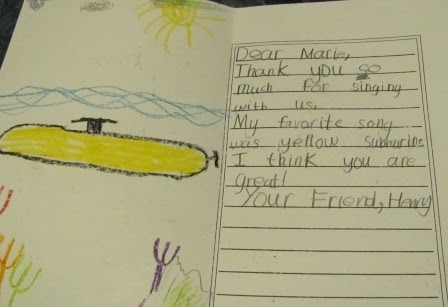 Dear Marie,
Thank you so
much for singing
with us.
My favorite song
was yellow submarine
I think you are
great!
Your Friend, Henry